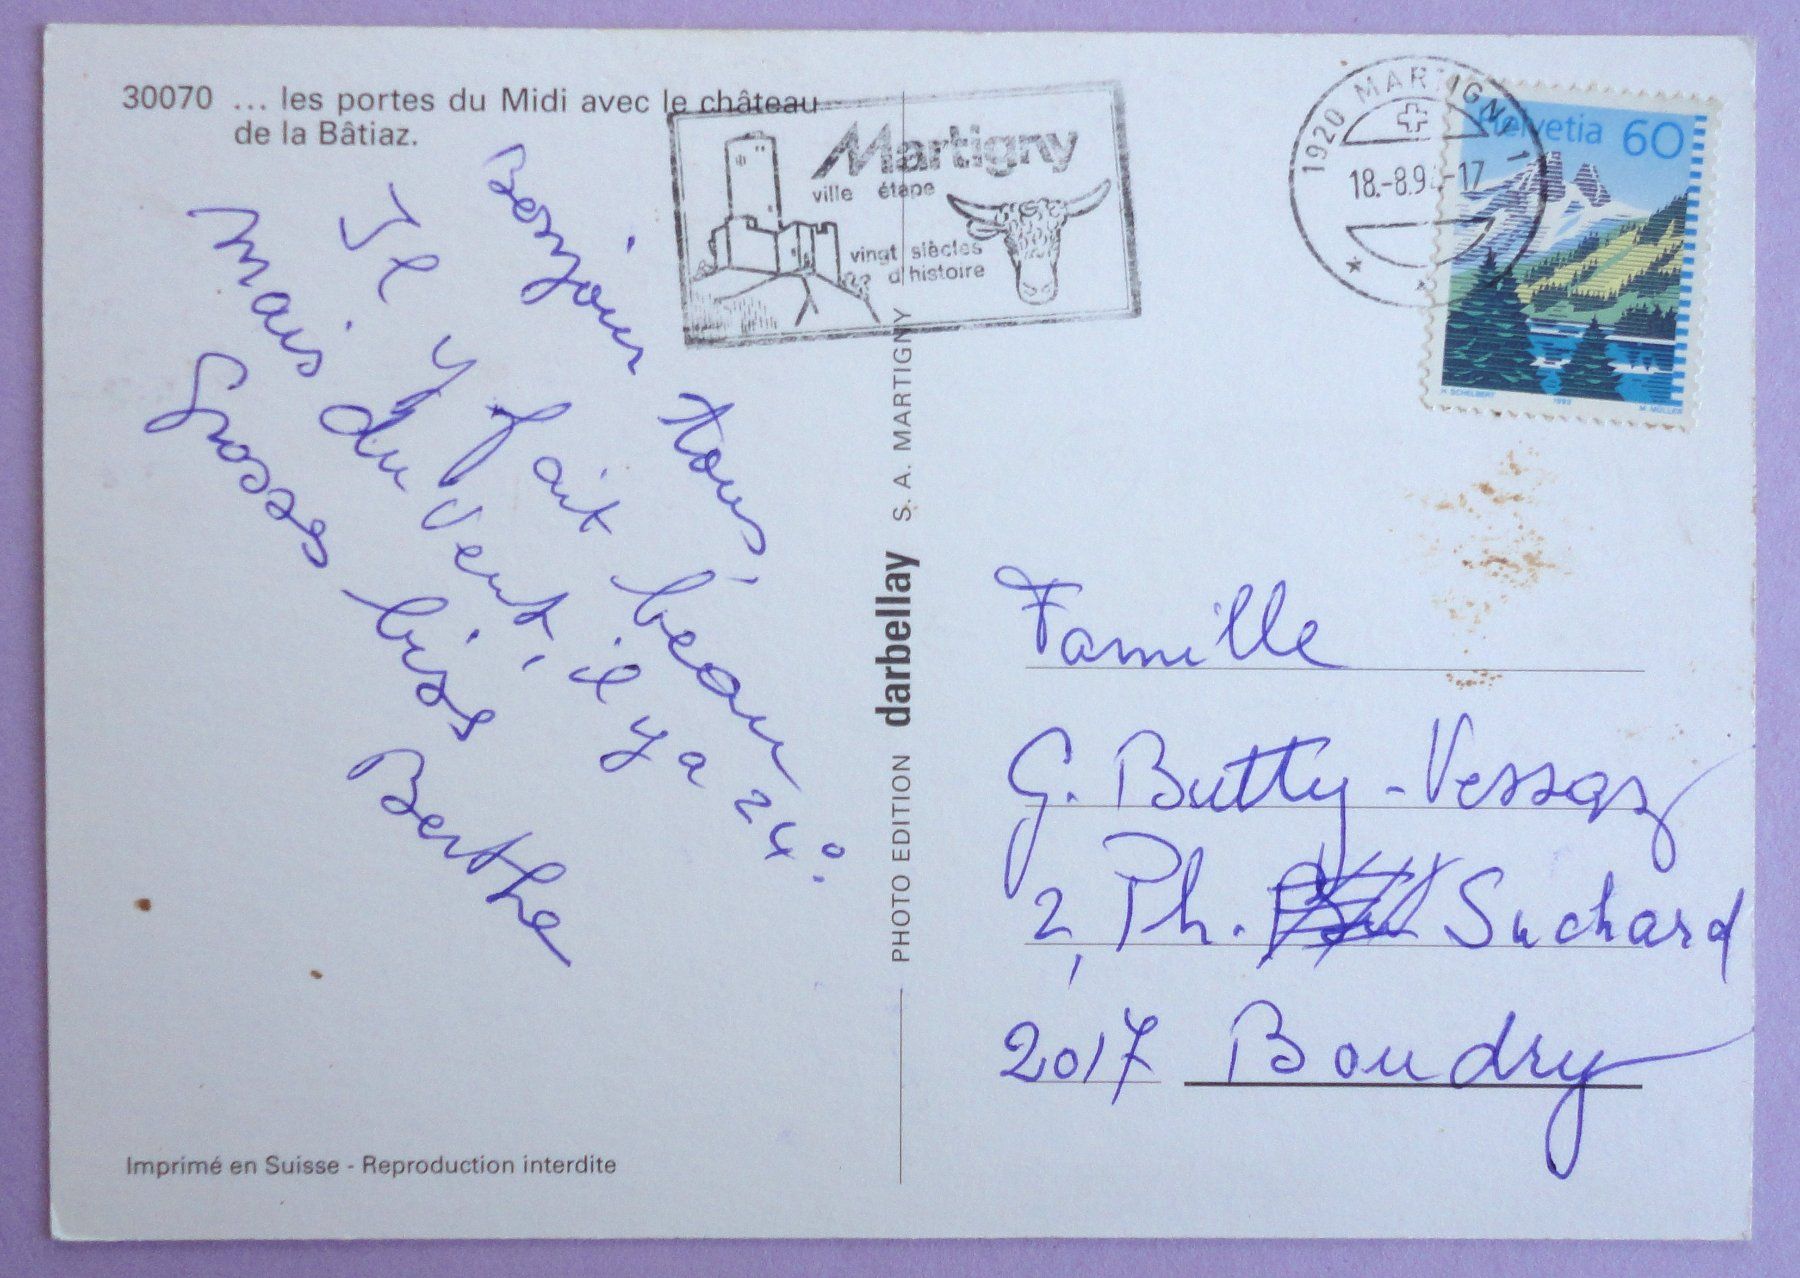 30070 ... les portes du Midi avec le château
de la Bâtiaz.
Martigny
ville étape
vingt siècles
d'histoire
1920 MARTIGNY 1
18.-8.9 -17
Helvetia 60
H. SCHELBERT 1993 M. MÜLLER
Bonjour tous,
Il y fait beau
mais du vent, il y a 24°.
Grosses bises
Berthe
PHOTO EDITION darbellay S. A. MARTIGNY
Famille
G. Butty-Vessaz
2, Ph. Suchard
2017 Boudry
Imprimé en Suisse - Reproduction interdite